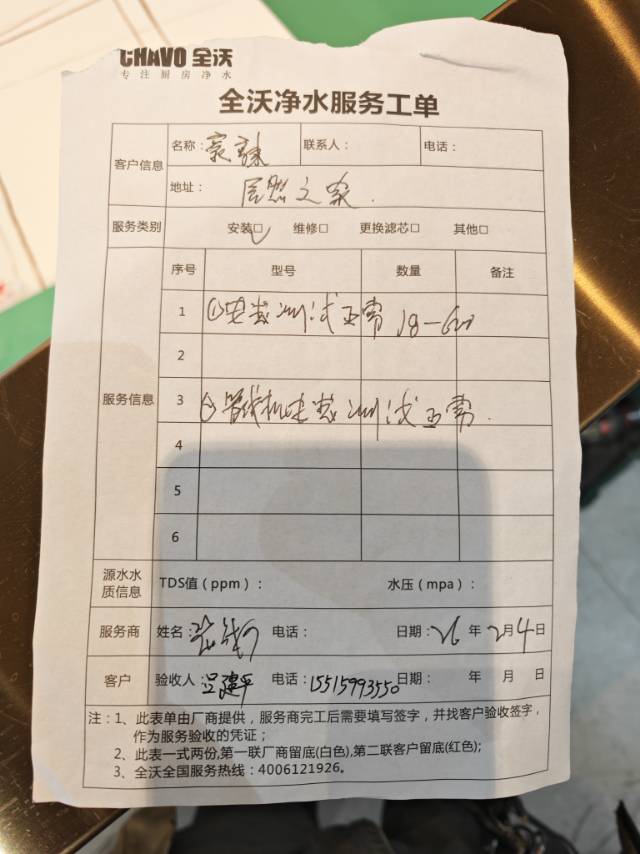 CHAVO 全沃
专注厨房净水
全沃净水服务工单
客户信息 名称： 联系人： 电话：
地址： 居然之家.
服务类别 安装☑ 维修□ 更换滤芯□ 其他□
服务信息 序号 型号 数量 备注
1 ①安装测试正常 J8-600
2
3 ②管线机安装测试正常.
4
5
6
源水水质信息 TDS值（ppm）： 水压（mpa）：
服务商 姓名： 电话： 日期：26年2月4日
客户 验收人：吕建平 电话：15515993550 日期： 年 月 日
注：1、此表单由厂商提供，服务商完工后需要填写签字，并找客户验收签字，
作为服务验收的凭证；
2、此表一式两份,第一联厂商留底(白色),第二联客户留底(红色);
3、全沃全国服务热线：4006121926。